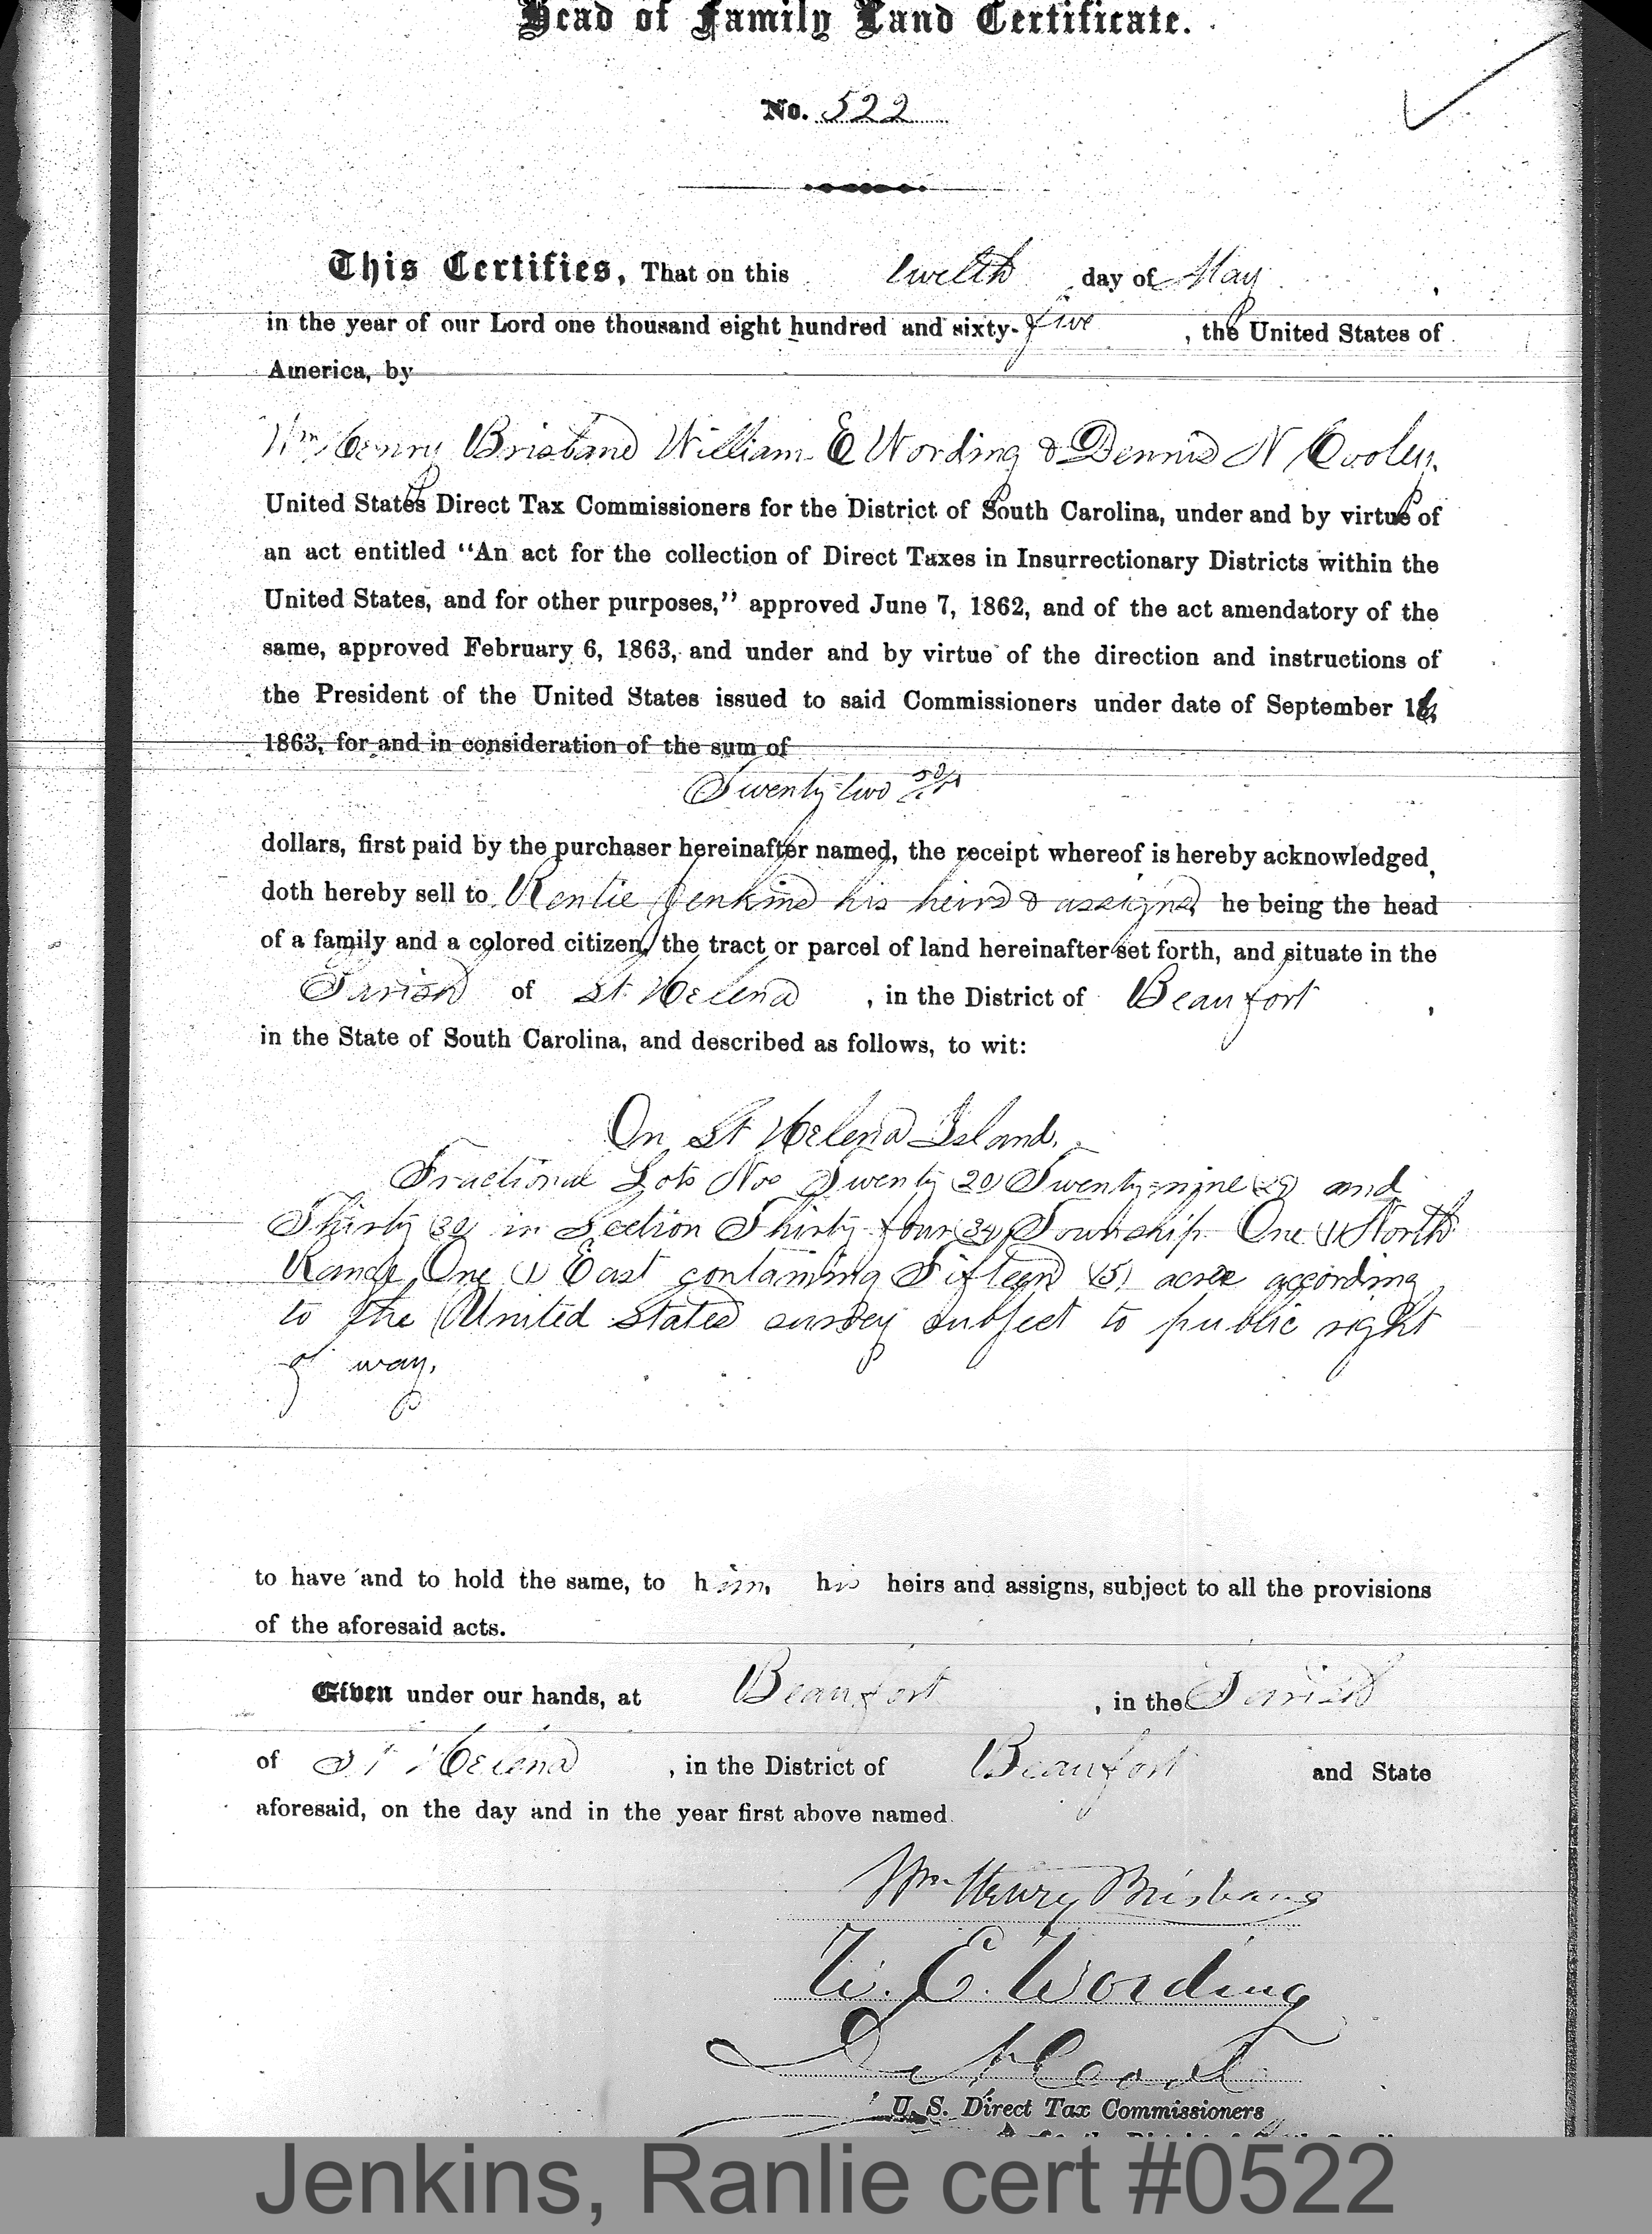 Head of Family Land Certificate.
No. 522
This Certifies, That on this twelth day of May,
in the year of our Lord one thousand eight hundred and sixty-five, the United States of
America, by
Wm Henry Brisbane William E Wording & Dennis N Cooley.
United States Direct Tax Commissioners for the District of South Carolina, under and by virtue of
an act entitled "An act for the collection of Direct Taxes in Insurrectionary Districts within the
United States, and for other purposes," approved June 7, 1862, and of the act amendatory of the
same, approved February 6, 1863, and under and by virtue of the direction and instructions of
the President of the United States issued to said Commissioners under date of September 16,
1863, for and in consideration of the sum of
Twenty-two 50/
dollars, first paid by the purchaser hereinafter named, the receipt whereof is hereby acknowledged,
doth hereby sell to Renlie Jenkins his heirs & assigns, he being the head
of a family and a colored citizen, the tract or parcel of land hereinafter set forth, and situate in the
Parish of St. Helena, in the District of Beaufort,
in the State of South Carolina, and described as follows, to wit:
On St Helena Island.
Fractional Lots Nos Twenty (20) Twenty-nine (29) and
Thirty (30) in Section Thirty four (34) Township One (1) North
Range One (1) East containing Fifteen (15) acres according
to the United States survey subject to public right
of way.
to have and to hold the same, to him, his heirs and assigns, subject to all the provisions
of the aforesaid acts.
Given under our hands, at Beaufort, in the Parish
of St Helena, in the District of Beaufort and State
aforesaid, on the day and in the year first above named.
Wm Henry Brisbane
W. E. Wording
U. S. Direct Tax Commissioners
Jenkins, Ranlie cert #0522